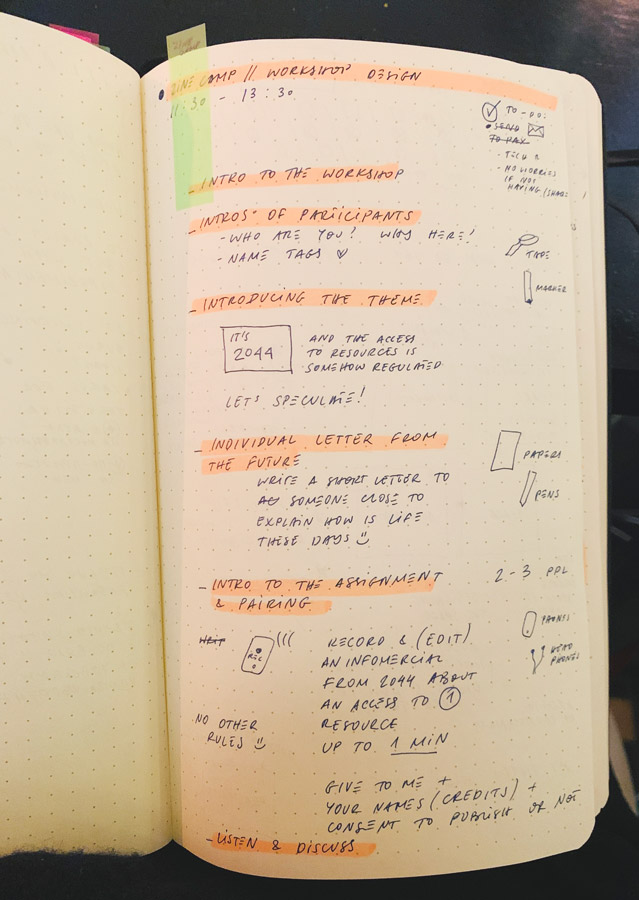 ZINE CAMP // WORKSHOP DESIGN
11:30 - 13:30
TO-DO:
SEND
TO PAY
- TECH
- NO WORRIES
IF NOT
HAVING (SHARE
- INTRO TO THE WORKSHOP
- INTROS OF PARTICIPANTS
- WHO ARE YOU? WHY HERE?
- NAME TAGS ♡
TAPE
MARKER
- INTRODUCING THE THEME
IT'S
2044
AND THE ACCESS
TO RESOURCES IS
SOMEHOW REGULATED
LET'S SPECULATE!
- INDIVIDUAL LETTER FROM
THE FUTURE
WRITE A SHORT LETTER TO
AS SOMEONE CLOSE TO
EXPLAIN HOW IS LIFE
THESE DAYS ☺
PAPERS
PENS
- INTRO TO THE ASSIGNMENT
& PAIRING
2-3 PPL
PHONES
HEAD
PHONES
REC
RECORD & (EDIT)
AN INFOMERCIAL
FROM 2044 ABOUT
AN ACCESS TO 1
RESOURCE
UP TO 1 MIN
NO OTHER
RULES ☺
GIVE TO ME +
YOUR NAMES (CREDITS) +
CONSENT TO PUBLISH OR NOT
- LISTEN & DISCUSS